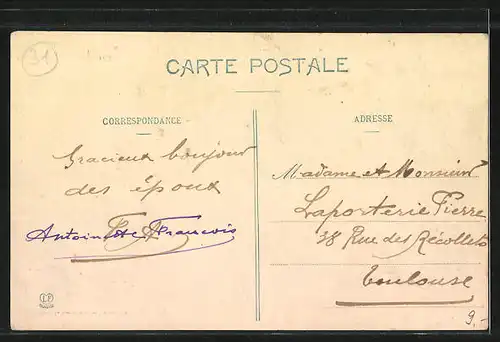 31
CARTE POSTALE
CORRESPONDANCE
Gracieux bonjour
des époux
Antoinette & Francois
ADRESSE
Madame et Monsieur
Laporterie Pierre
38 Rue des Récollets
Toulouse
9.-